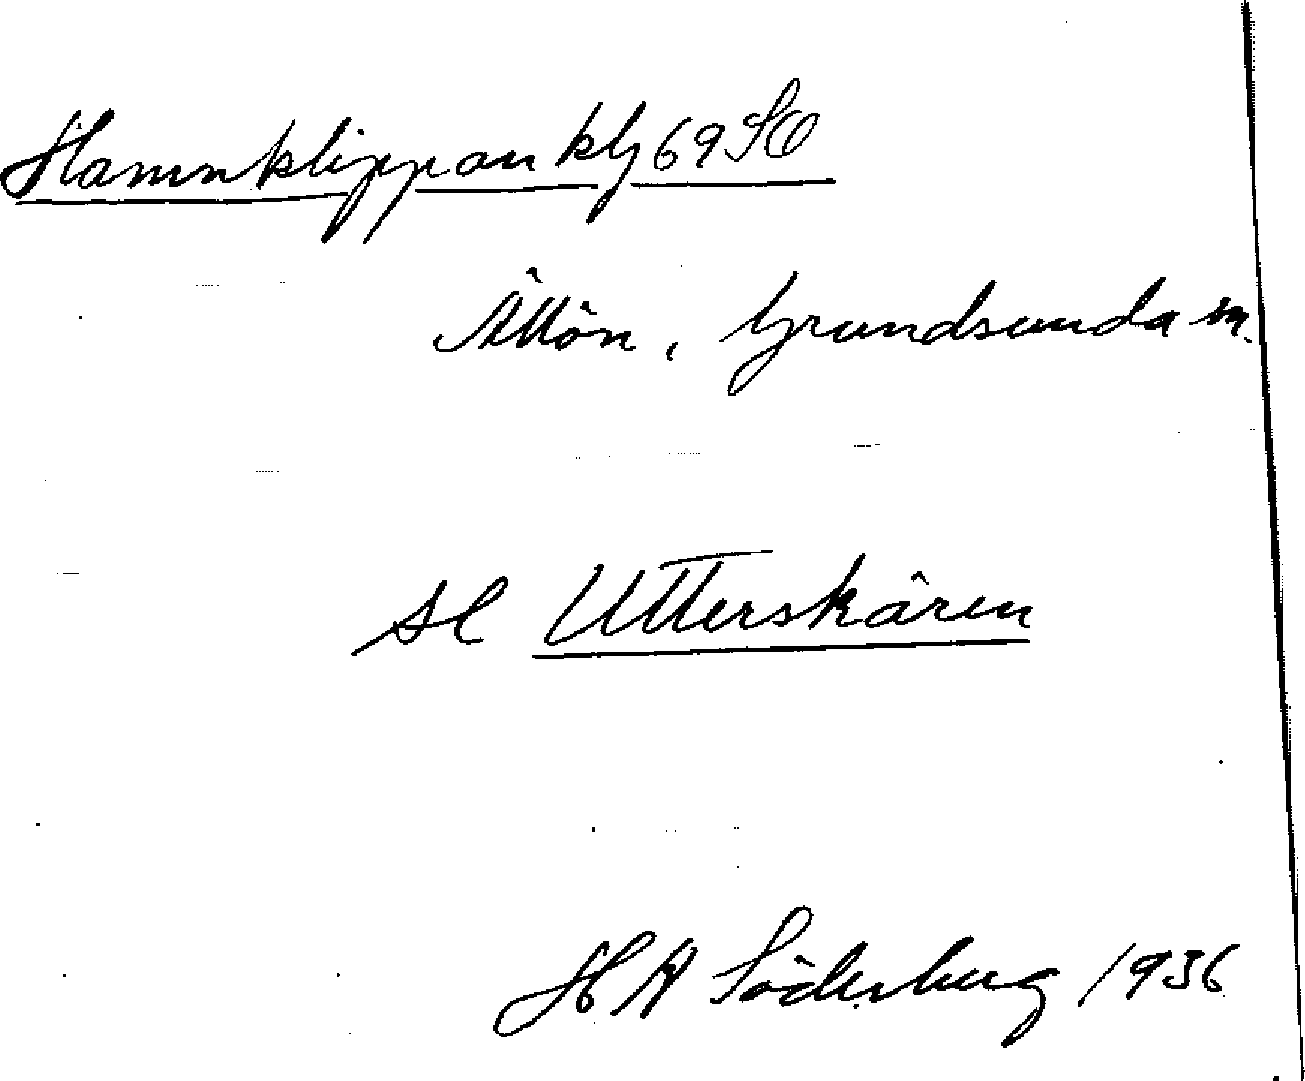 Hamnklippan klj 69 SO
Ällön, Grundsunda sn.
se Utterskären
H A Söderberg 1936